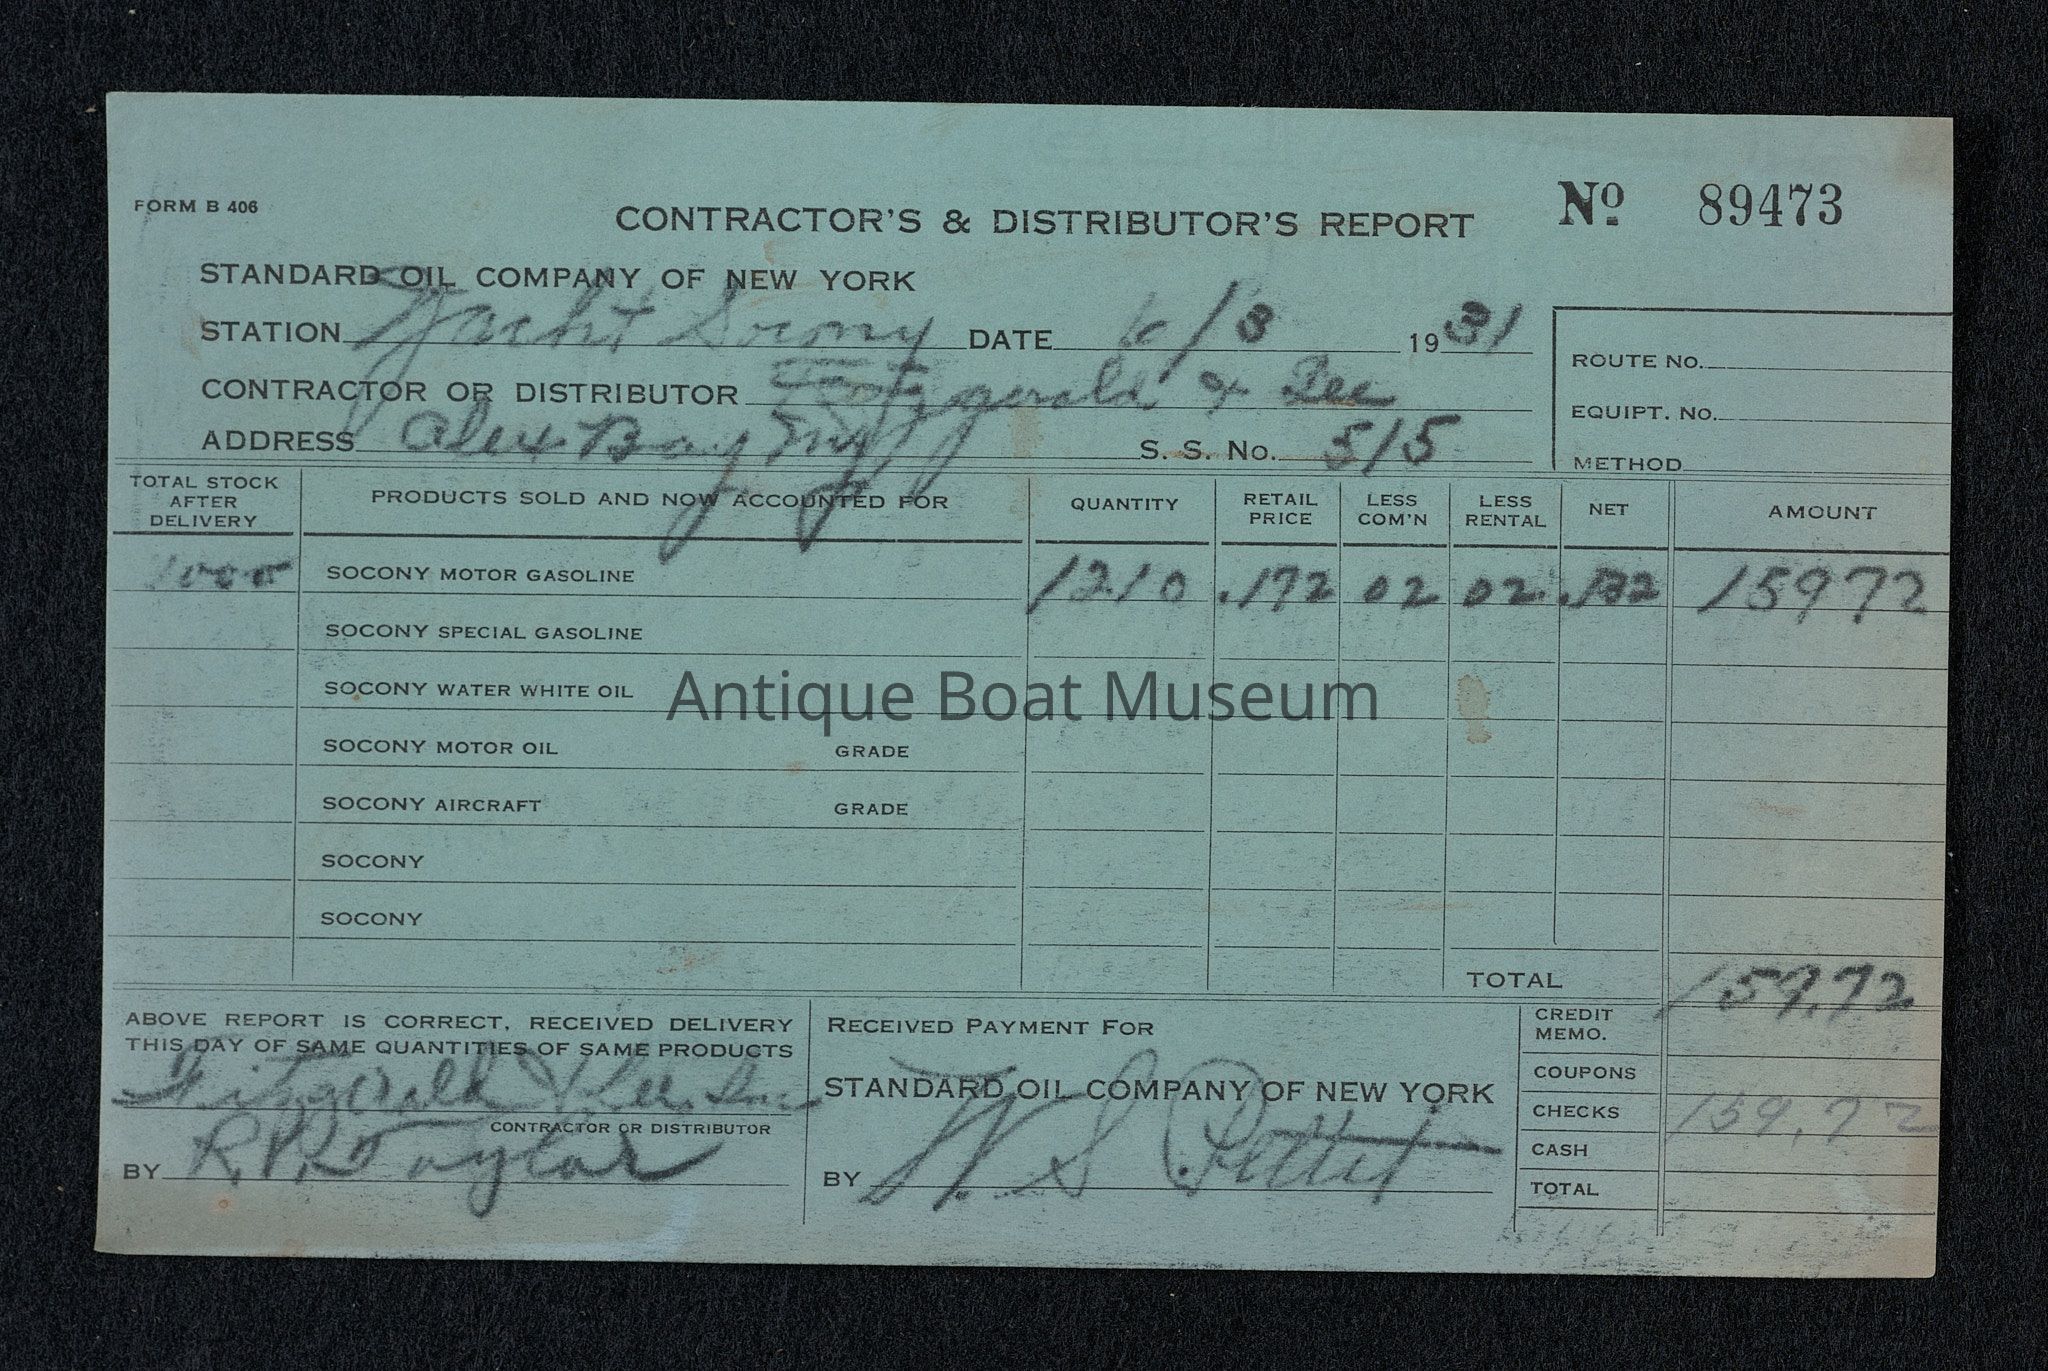 FORM B 406
CONTRACTOR'S & DISTRIBUTOR'S REPORT
No 89473
STANDARD OIL COMPANY OF NEW YORK
STATION Yacht Socony DATE 6/3 1931
ROUTE No.
CONTRACTOR OR DISTRIBUTOR Fitzgerald & Lee
EQUIPT. No.
ADDRESS Alex Bay NY S. S. No. 515
METHOD
TOTAL STOCK AFTER DELIVERY PRODUCTS SOLD AND NOW ACCOUNTED FOR QUANTITY RETAIL PRICE LESS COM'N LESS RENTAL NET AMOUNT
1000 SOCONY MOTOR GASOLINE 1210 .172 02 02 .132 15972
SOCONY SPECIAL GASOLINE
SOCONY WATER WHITE OIL
Antique Boat Museum
SOCONY MOTOR OIL GRADE
SOCONY AIRCRAFT GRADE
SOCONY
SOCONY
TOTAL 159.72
ABOVE REPORT IS CORRECT, RECEIVED DELIVERY
THIS DAY OF SAME QUANTITIES OF SAME PRODUCTS
Fitzgerald & Lee. Inc
CONTRACTOR OR DISTRIBUTOR
BY R.P. Taylor
RECEIVED PAYMENT FOR
STANDARD OIL COMPANY OF NEW YORK
BY W. S.
CREDIT MEMO.
COUPONS
CHECKS 159.72
CASH
TOTAL